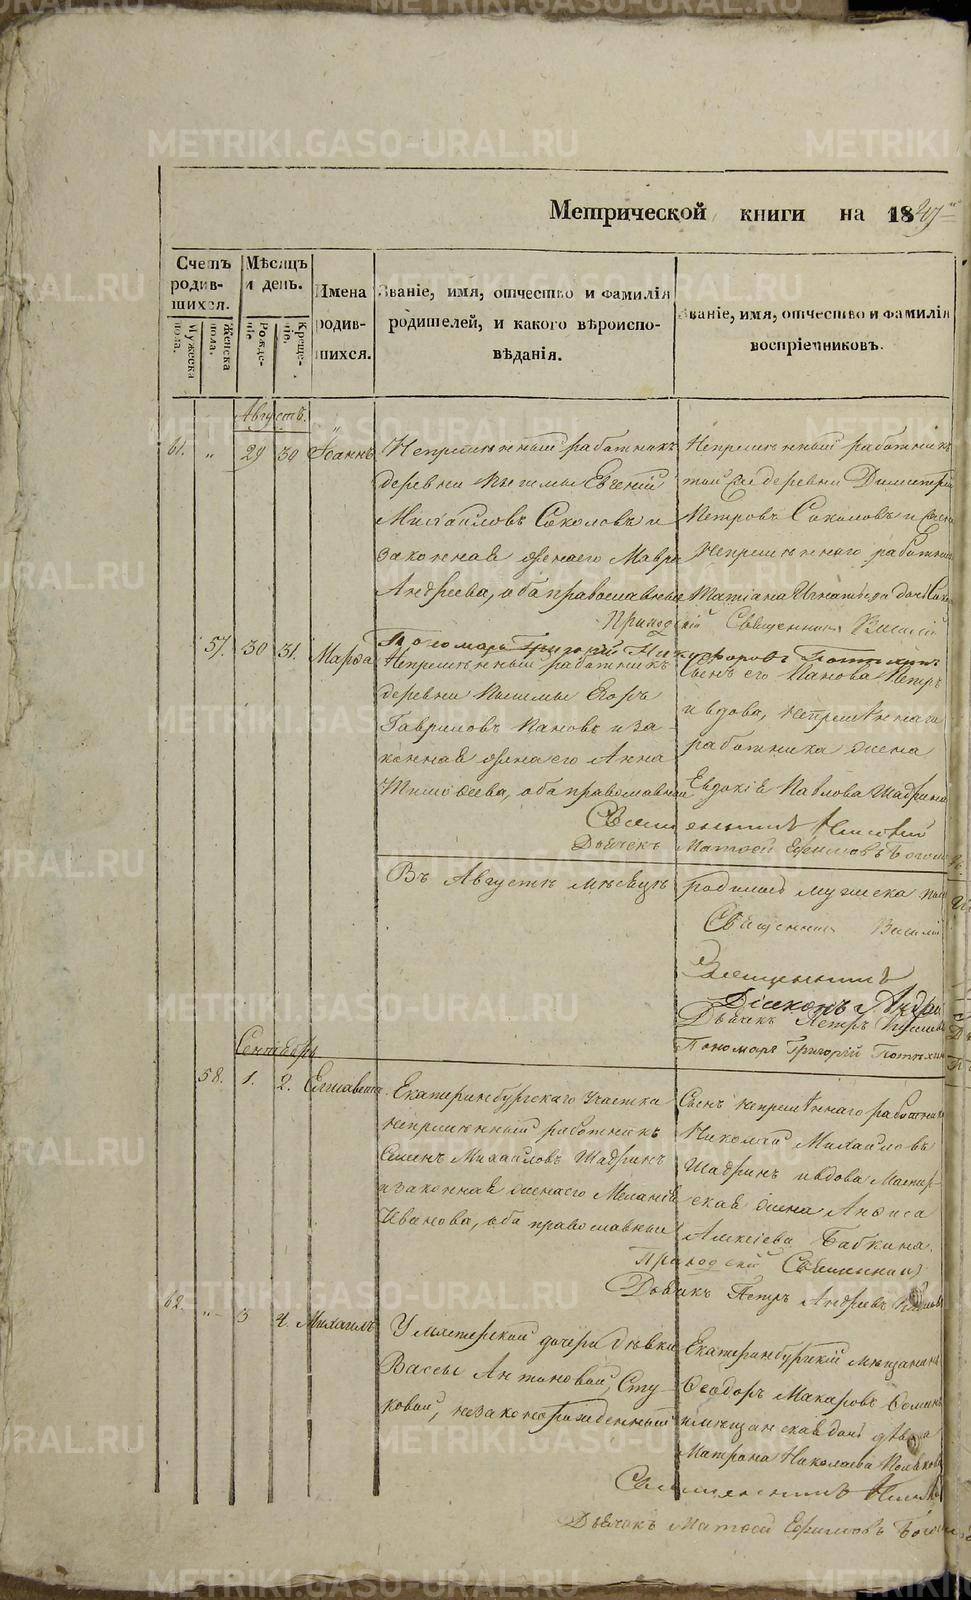 METRIKI.GASO-URAL.RU
Метрической книги на 1847
Счетъ родив-шихся.
Мужеска пола.
Женска пола.
Мѣсяцъ и день.
Рожденіе.
Крещеніе.
Имена родив-шихся.
Званіе, имя, отчество и фамилія
родителей, и какого вѣроиспо-
вѣданія.
Званіе, имя, отчество и фамилія
воспріемниковъ.
Августъ.
61. „ 29 30 Іоаннъ
Непремѣнный работникъ
деревни Пышмы Евгеній
Михайловъ Соколовъ и
законная жена его Мавра
Андреева, оба православные
Непремѣнный работникъ
той же деревни Димитрій
Петровъ Соколовъ и
Непремѣннаго работника
Татіана Игнатьева дочь
Приходскій Священникъ Василій
Пономарь Григорій Никифоровъ Потѣхинъ
57. 30 31. Марѳа
Непремѣнный работникъ
деревни Пышмы Егоръ
Гавриловъ Пановъ и за-
конная жена его Анна
Тимоѳеева, оба православные
Сынъ его Панова Петръ
и вдова, непремѣннаго
работника жена
Евдокія Павлова Шадрина
Священникъ
Дьячекъ Матѳей Ефимовъ
Въ Августѣ мѣсяцѣ родилось мужеска
Священникъ Василій
Священникъ
Діаконъ Андрей
Дьячекъ Петръ
Пономарь Григорій Потѣхинъ
Сентябрь
58. 1. 2. Елисавета
Екатеринбургскаго участка
непремѣнный работникъ
Семенъ Михайловъ Шадринъ
и законная жена его Меланія
Иванова, оба православные
Сынъ непремѣннаго работника
Николай Михайловъ
Шадринъ и вдова Мастер-
ская жена Анѳиса
Алексѣева Бабкина.
Приходскій Священникъ
Дьячекъ Петръ Андреевъ
62. „ 3 4. Михаилъ
У мастерской дочери дѣвки
Вассы Антоновой, Сту-
ковой, незаконорожденный
Екатеринбургскій мѣщанинъ
Ѳеодоръ Макаровъ
и мѣщанская дочь дѣвка
Матрона Николаева
Священникъ
Дьячекъ Матѳей Ефимовъ